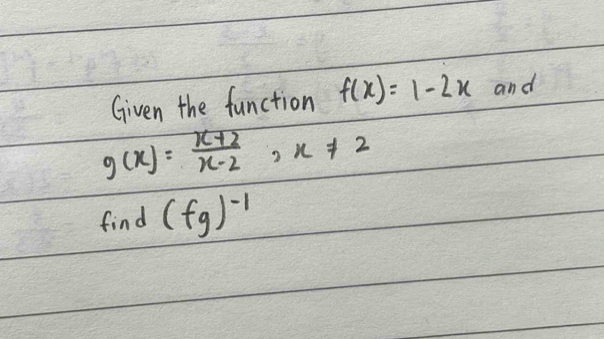 Given the function f(x) = 1 - 2x and
g(x) = \frac{x+2}{x-2} , x ≠ 2
find (fg)⁻¹